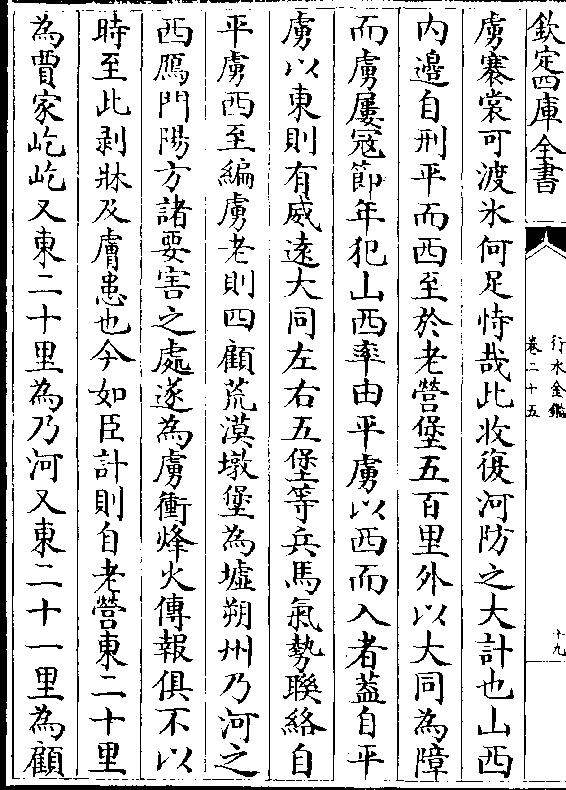 欽定四庫全書
行水金鑑
卷二十五
十九
虜褰裳可渡氷何足恃哉此收復河防之大計也山西
内邊自刑平而西至於老營堡五百里外以大同為障
而虜屢冦節年犯山西率由平虜以西而入者葢自平
虜以東則有威遠大同左右五堡等兵馬氣勢聯絡自
平虜西至編虜老則四顧荒漠墩堡為墟朔州乃河之
西鴈門陽方諸要害之處遂為虜衝烽火傳報俱不以
時至此剥牀及膚患也今如臣計則自老營東二十里
為賈家屹屹又東二十里為乃河又東二十一里為顧